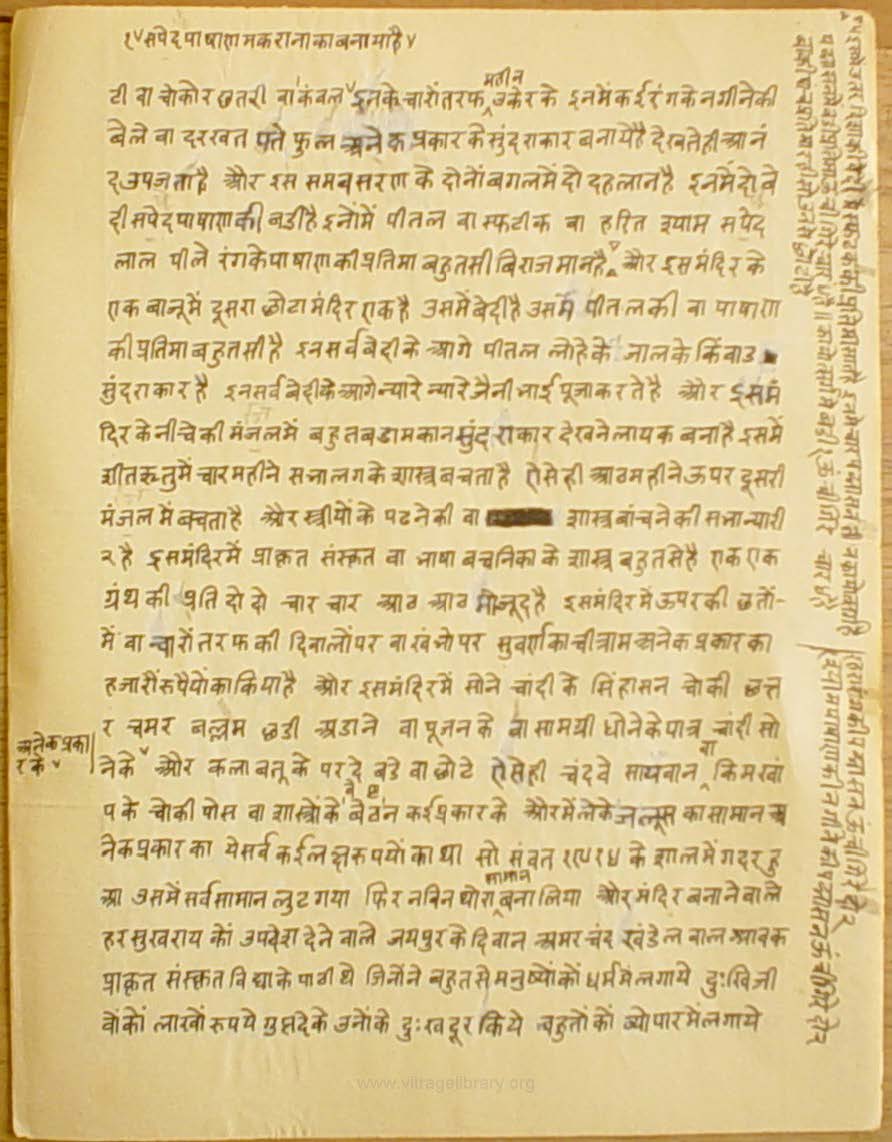 १४सपेदपाषाणमकरानाकाबनामाहै४
टी वा चोकोर छतरी वा कंवल इनके चारोंतरफ महीन उकेर के इनमें कईरंगके नगीनेकी
बेले वा दरखत पते फुल अनेक प्रकार के सुंदराकार बनायेहै देखतेही आनं
दउपजताहै और इस समवसरण के दोनोंबगलमें दो दहलानहै इनमेंदोवे
दी सपेदपाषाणकी बडीहै इनोंमें पीतल वा स्फटीक वा हरित श्याम सपेद
लाल पीले रंगकेपाषाणकी प्रतिमा बहुतसी बिराजमानहै और इसमंदिर के
एक बाजूमें दूसरा छोटामंदिर एकहै उसमेंबेदीहै उसमें पीतलकी वा पाषाण
की प्रतिमाबहुतसीहै इनसर्वबेदीके आगे पीतल लोहेके जालके किंवाड
सुंदराकारहै इनसर्वबेदीकेआगेन्यारे न्यारे जैनीभाई पूजाकरतेहै और इसमं
दिरकेनीचेकी मंजलमें बहुतबडामकानसुंदराकार देखनेलायक बनाहै इसमें
शीतऋतुमें चारमहीने सभालगके शास्त्रबचताहै ऐसेही आठमहीनेऊपर दूसरी
मंजलमेंबचताहै और स्त्रीयोंके पढनेकी वा शास्त्रबांचनेकी सभान्यारी
२ है इसमंदिरमें प्राकृत संस्कृत वा भाषा बचनिकाके शास्त्र बहुतसेहै एकएक
ग्रंथकी प्रति दोदो चारचार आठ आठ मोजूदहै इसमंदिरमेंऊपरकी छतों-
में वा चारोंतरफकी दिवालोंपर वा खंभोपर सुवर्णकाचीत्राम अनेकप्रकारका
हजारोंरुपैयोंकाकियाहै और इसमंदिरमें सोने चांदीके सिंहासन चोकी छत्त
र चमर बल्लम छडी अडाने वा पूजनके वा सामग्री धोनेकेपात्र चांरीसो
अनेकप्रका
रके४
नेके४ और कलाबतूके परदे बडे वा छोटे ऐसेही चंदवे सायवान वा किमखां
पके चोकीपोस वा शास्त्रोंके बेठन कईप्रकारके औरमेंलेकेजलूसकासामान अ
नेकप्रकारका येसर्व कईलक्षरुपयोंकाथा सो संवत १९१४ के शालमेंगदरहु
आ उसमेंसर्वसामान लुटगया फिर नविन थोरा सामान बनालिया और मंदिर बनानेवाले
हरसुखराय कों उपदेश देनेवाले जयपुरके दिवान अमरचंद खंडेलवाल श्रावक
प्राकृत संस्कृत विद्याके पाठीथे जिनोंने बहुतसेमनुष्योंकों धर्ममेंलगाये दुःखिजी
वोंकों लाखोंरुपये गुप्तदेके उनोंके दुःखदूरकिये बहुतोंकों व्योपारमेंलगाये
www.vitragelibrary.org